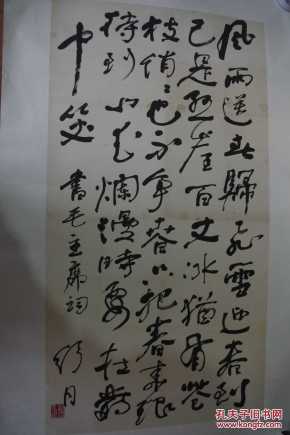 風雨送春歸飛雪迎春到
已是悬崖百丈冰猶有花
枝俏〻也不争春只把春来报
待到山花爛漫時她在叢
中笑 書毛主席词
孔夫子旧书网